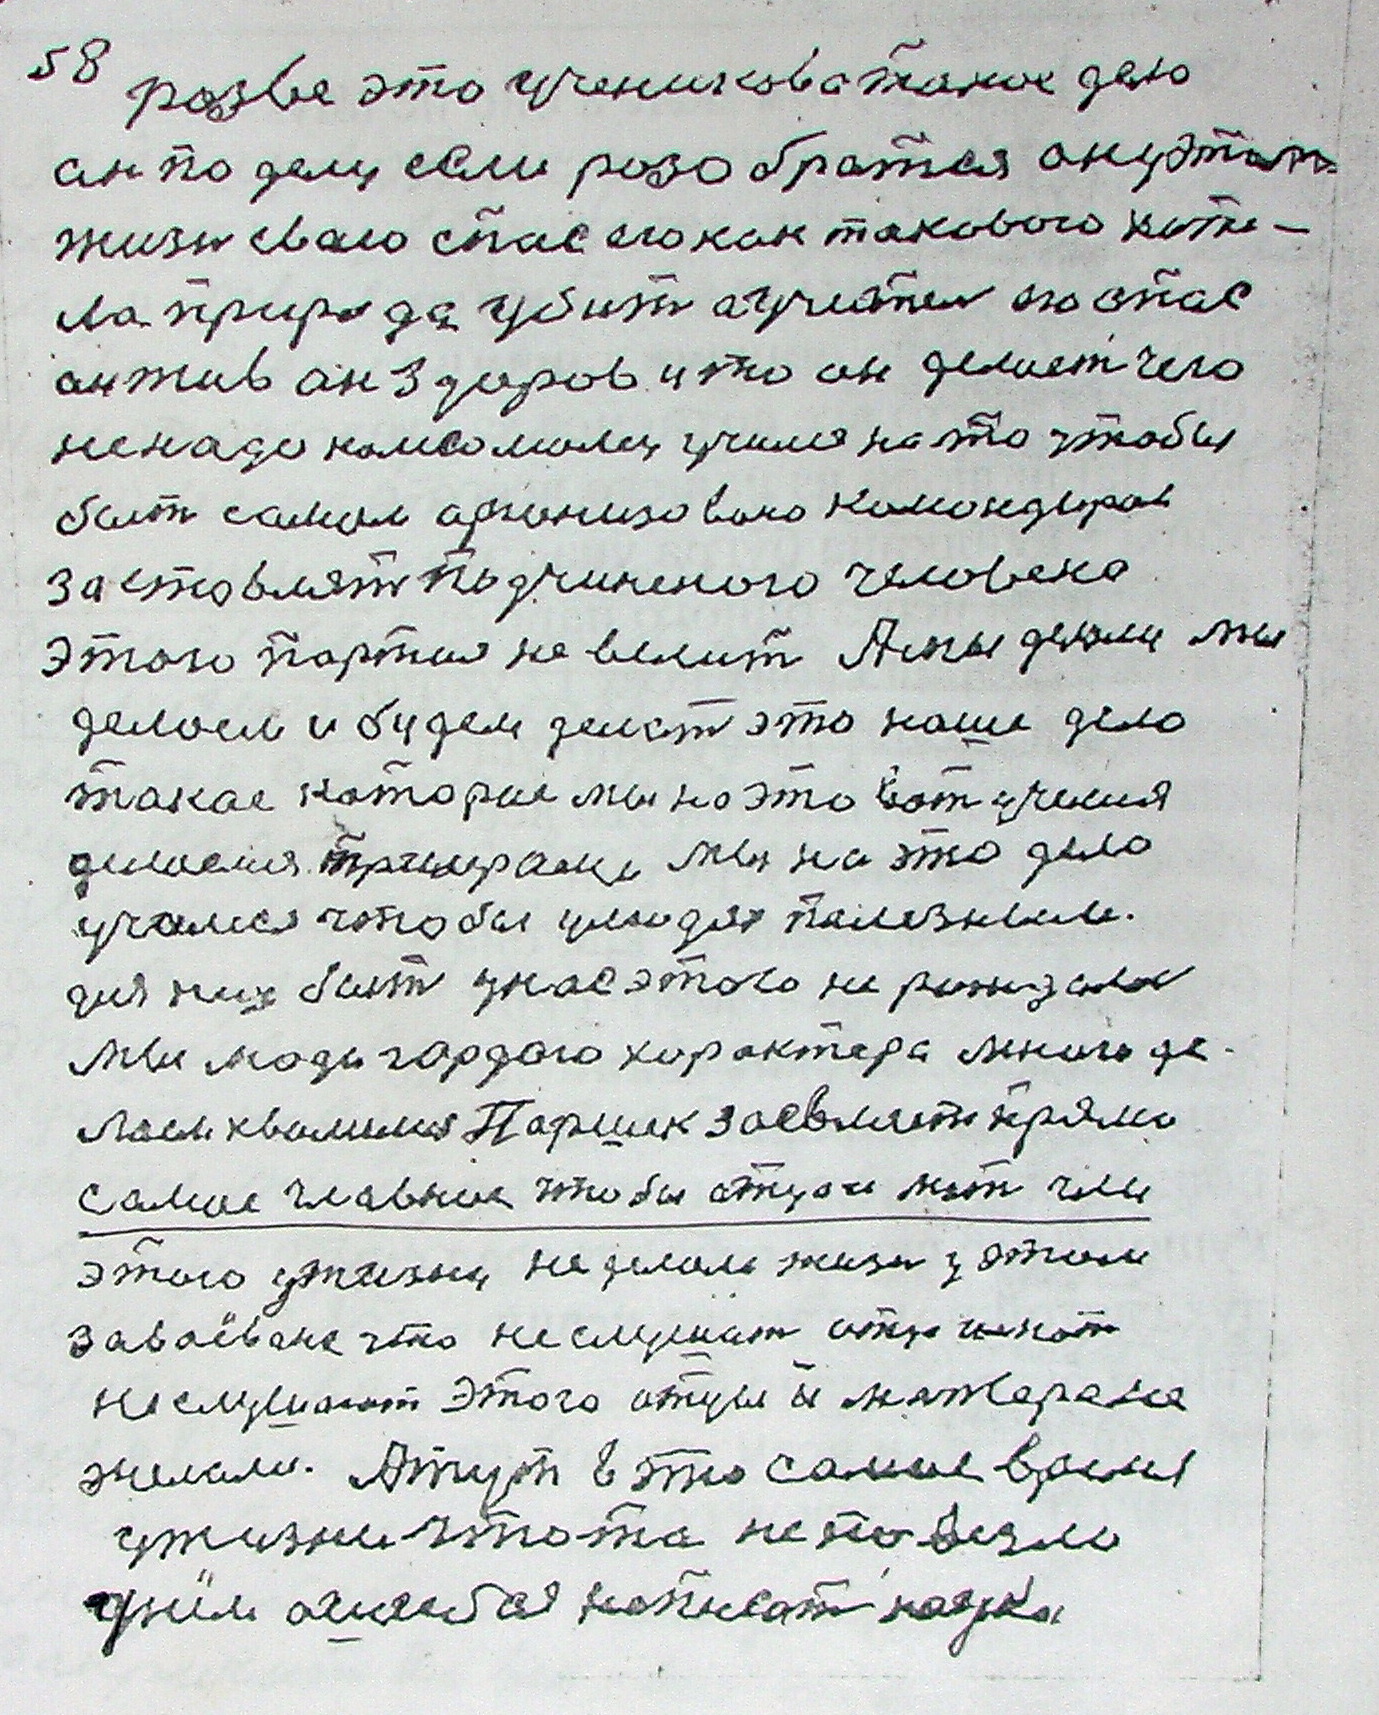 58
розве это учениково такое дело
он по делу если розобратся он у этим
жизн сваю спас его как такового хоте-
ла природа убит а учител его спас
он жив он здоров и то он делает чего
ненадо комсомолец учился на то чтобы
быт самым организовано командиров
заставлят подчиненого человека
этого партия не велит А мы делали мы
делаем и будем делат это наше дело
такае которые мы на это вот учения
делаемся мы на это дело
учимся чтобы у людях полезным.
для них быт у нас этого не
мы люди гордого характера много де-
лаем хвалимся Паршек заевляет прямо
самое главное чтобы отцы и мат чли
этого у жизни не делали жизн у этом
завоёване что не слушают отца и мат
неслушают этого отцы и матеря не
желали. А тут в это самое время
у жизни что та не повезло
у нём ошибся написат наука